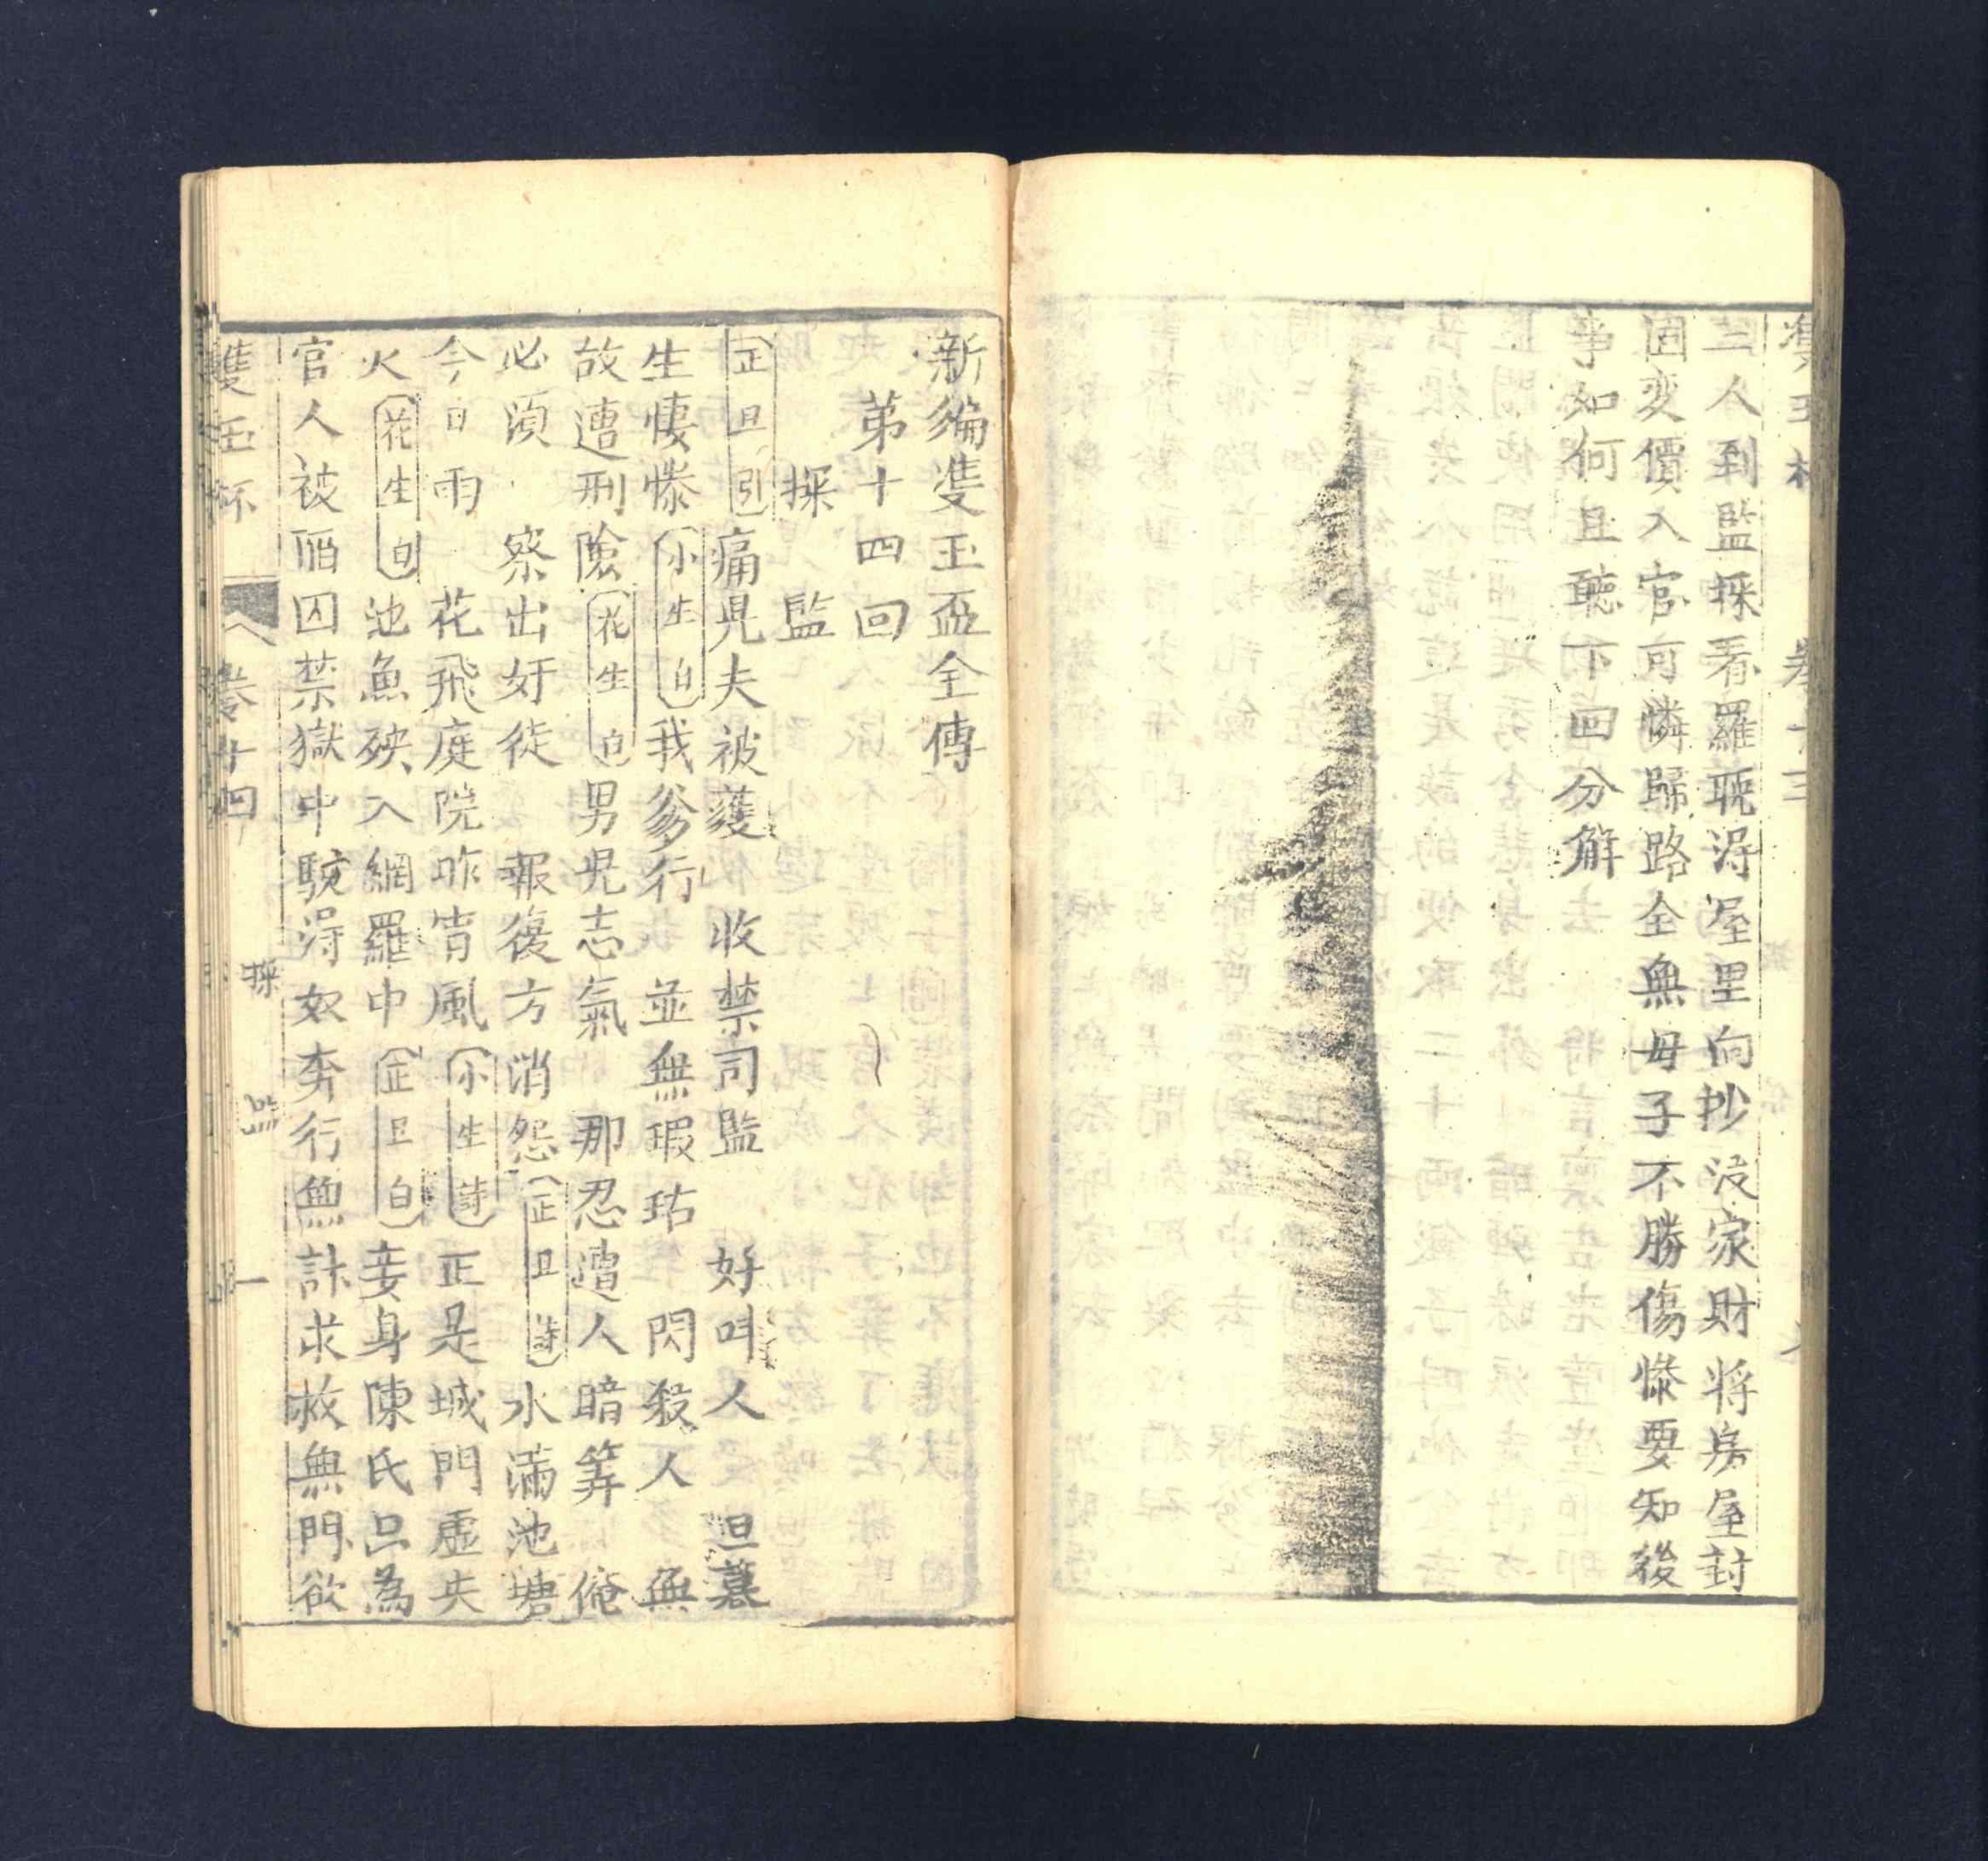 雙玉杯 卷十三
三人到監探看羅琥淂屋里向抄沒家財将房屋封
固変價入官可憐歸路全無母子不勝傷慘要知後
事如何且聽下回分解
新編雙玉盃全傳
第十四回
探監
〔正旦引〕痛児夫被䕶 收禁司監 好呌人 旦暮
生悽慘〔小生白〕我爹行 並無瑕玷 閃殺人 無
故遭刑險〔花生白〕男児志氣 那忍遭人暗筭 俺
必須 察出奸徒 報復方消怨〔正旦詩〕水滿池塘
今日雨 花飛庭院昨宵風〔小生詩〕正是城門虛失
火〔花生白〕池魚殃入網羅中〔正旦白〕妾身陳氏只為
官人被陷囚禁獄中駭淂奴夯行無計求救無門欲
雙玉杯 卷十四 探監 一